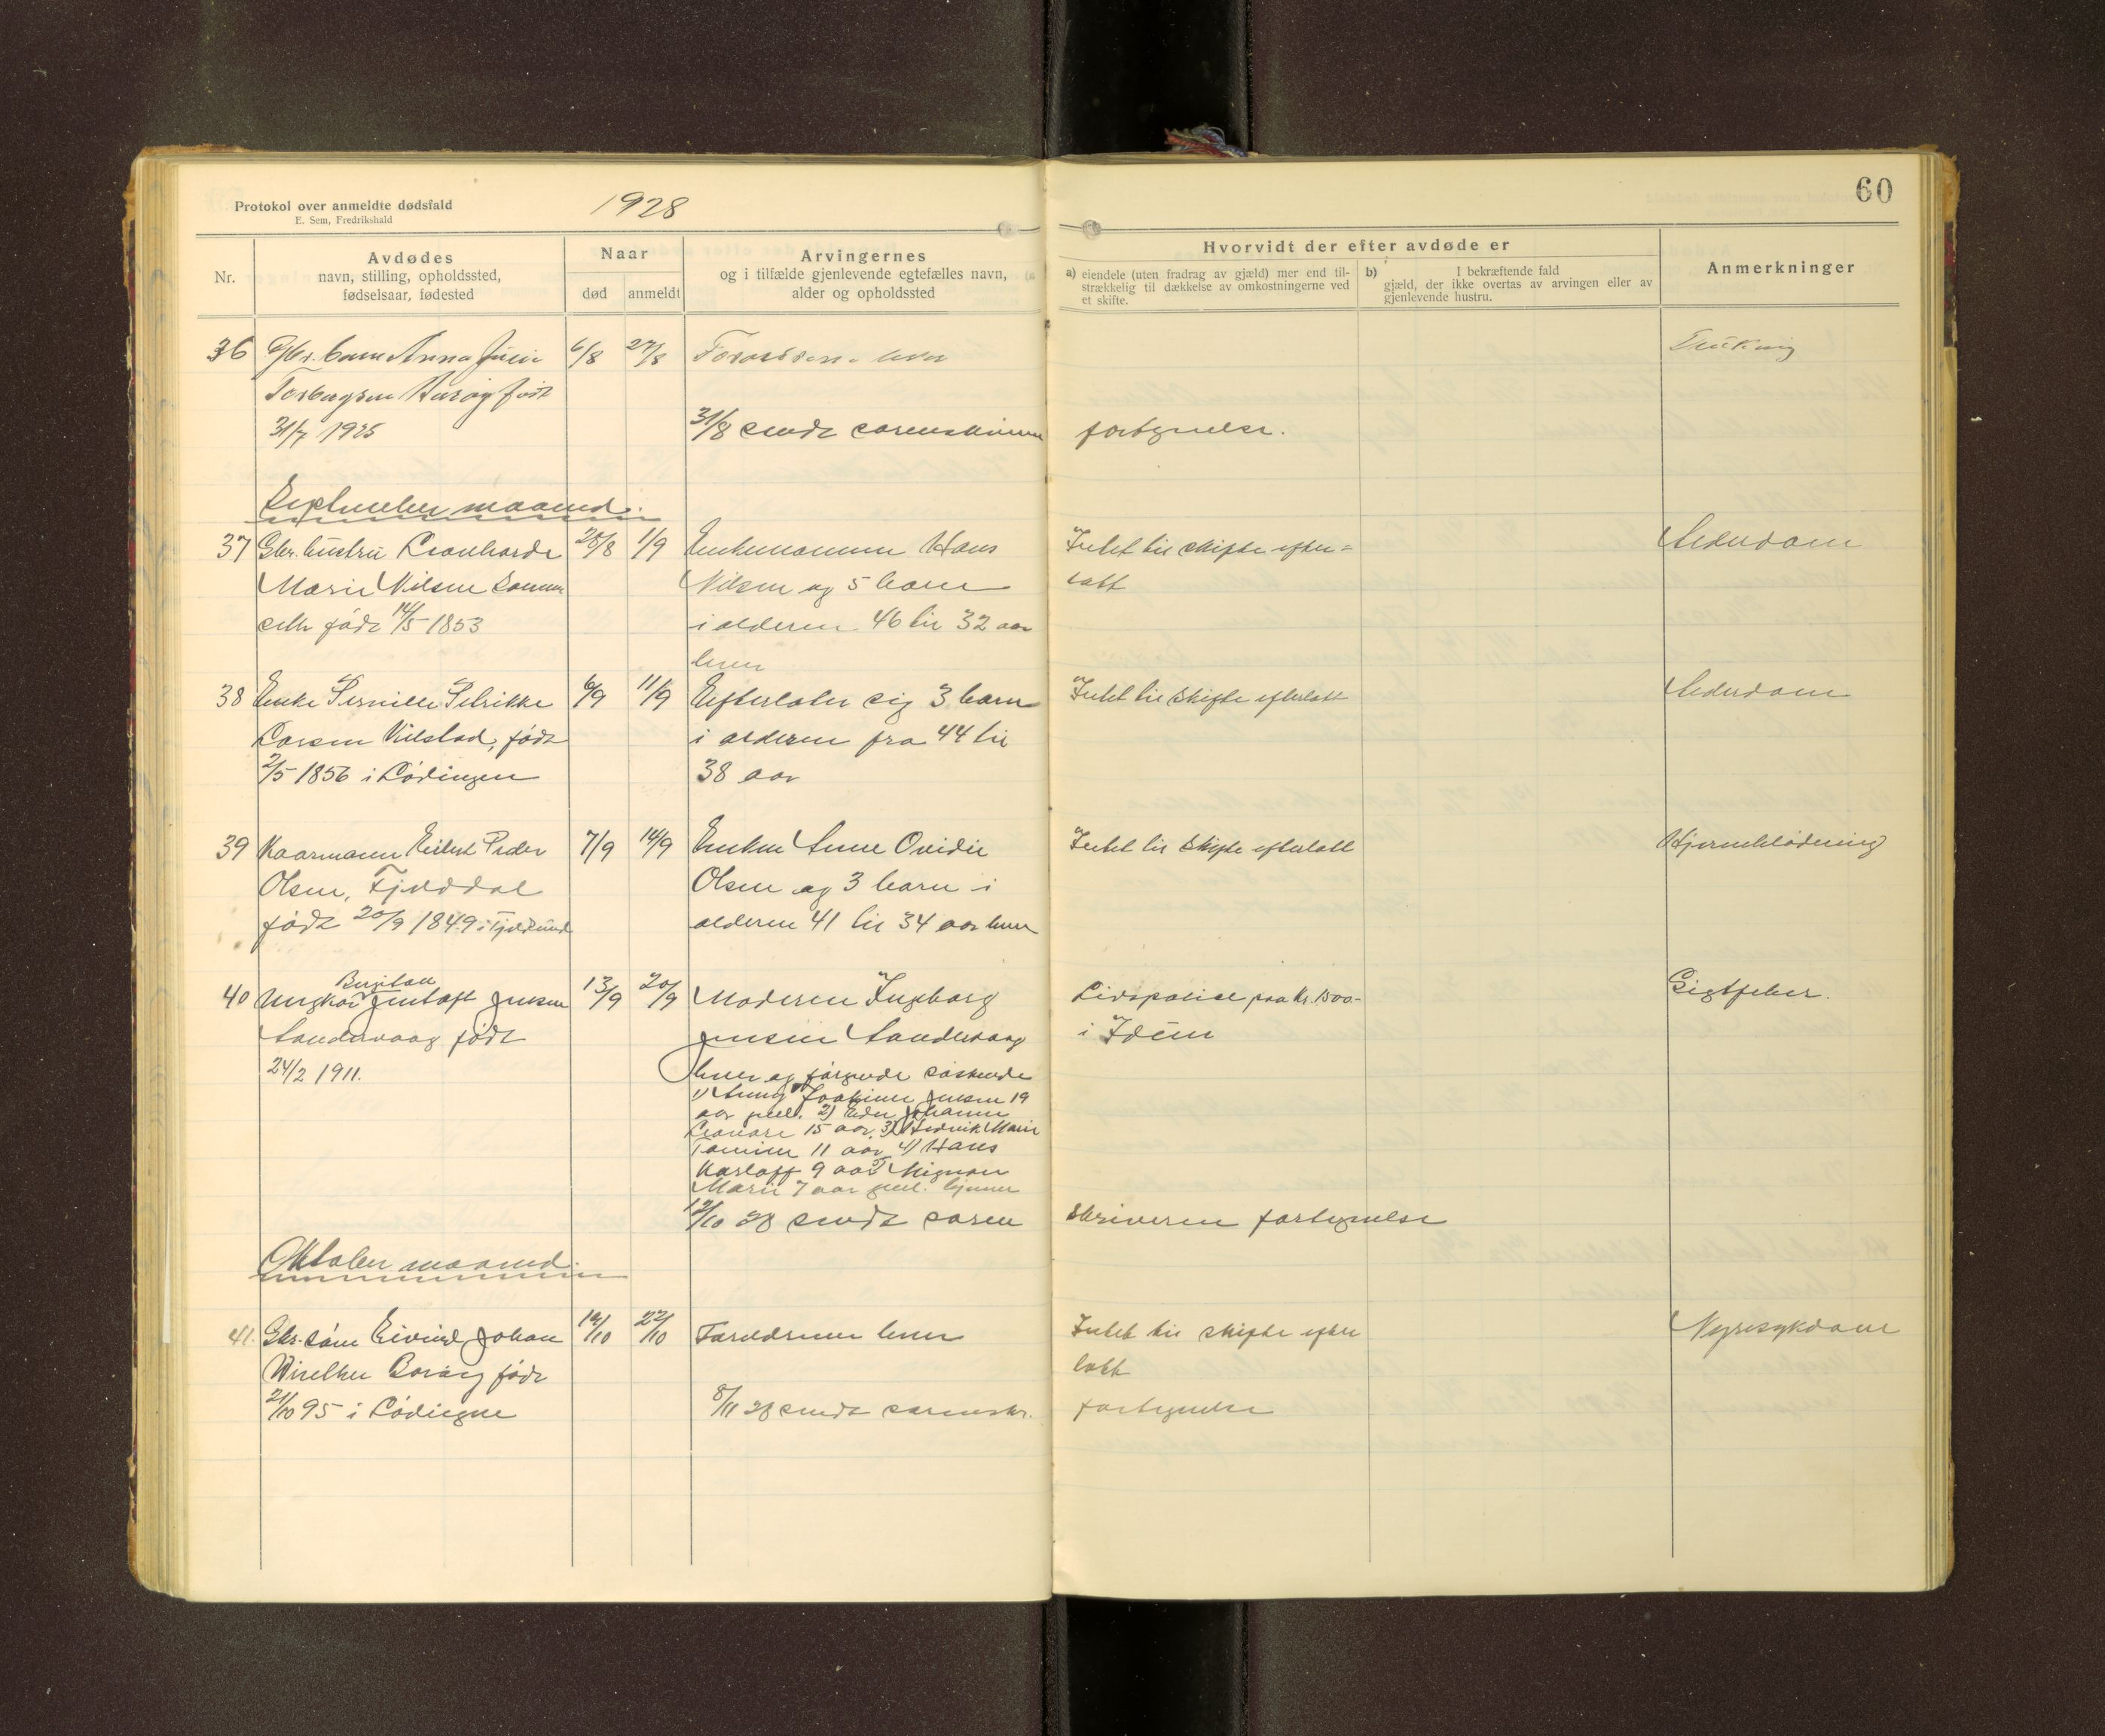 Protokol over anmeldte dødsfald
E. Sem, Fredrikshald
1928
60
Nr.
Avdødes
navn, stilling, opholdssted,
fødselsaar, fødested
Naar
død
anmeldt
Arvingernes
og i tilfælde gjenlevende egtefælles navn,
alder og opholdssted
Hvorvidt der efter avdøde er
a) eiendele (uten fradrag av gjæld) mer end til-
strækkelig til dækkelse av omkostningerne ved
et skifte.
b) I bekræftende fald
gjæld, der ikke overtas av arvingen eller av
gjenlevende hustru.
Anmerkninger
36 Gbr. barn Anna 6/8 27/8
født
31/7 1925 31/8 sendt sorenskriveren fortegnelse.
September maaned.
37 Gbr. hustru Leonharde 28/8 1/9 Enkemannen Hans Intet til skifte efter= Alderdom
Marie Nilsen Nilsen og 5 barn latt
født 14/5 1853 i alderen 46 til 32 aar
her
38 Enke Pernille Petrikke 6/9 11/9 Efterlater sig 3 barn Intet til skifte efterlatt Alderdom
Larsen født i alderen fra 44 til
2/5 1856 i Lødingen 38 aar
39 Kaarmann Eilert Peder 7/9 14/9 Enken Anne Ovidie Intet til skifte efterlatt Hjerneblødning
Olsen, Fjelddal Olsen og 3 barn i
født 20/9 1849 i Tjeldsund alderen 41 til 34 aar
40 Ungkar Jentoft Jensen 13/9 20/9 Moderen Ingeborg Livspolise paa Kr. 1500.- Gigtfeber.
Sandervaag født Jensen Sandervaag i Idun
24/2 1911. og følgende søskende
1) Joakime Jensen 19
aar 2) Johanne
Leonore 15 aar, 3) Hedvik Marie
11 aar 4) Hans
Karloff 9 aar 5) Mignon
Marie 7 aar hjemme
12/10 28 sendt soren skriveren fortegnelse
Oktober maaned.
41. Gbr. søn Eivind Johan 19/10 22/10 Forældrene Intet til skifte efter Nyresykdom
født latt
21/10 95 i Lødingen 8/11 28 sendt sorenskr. fortegnelse